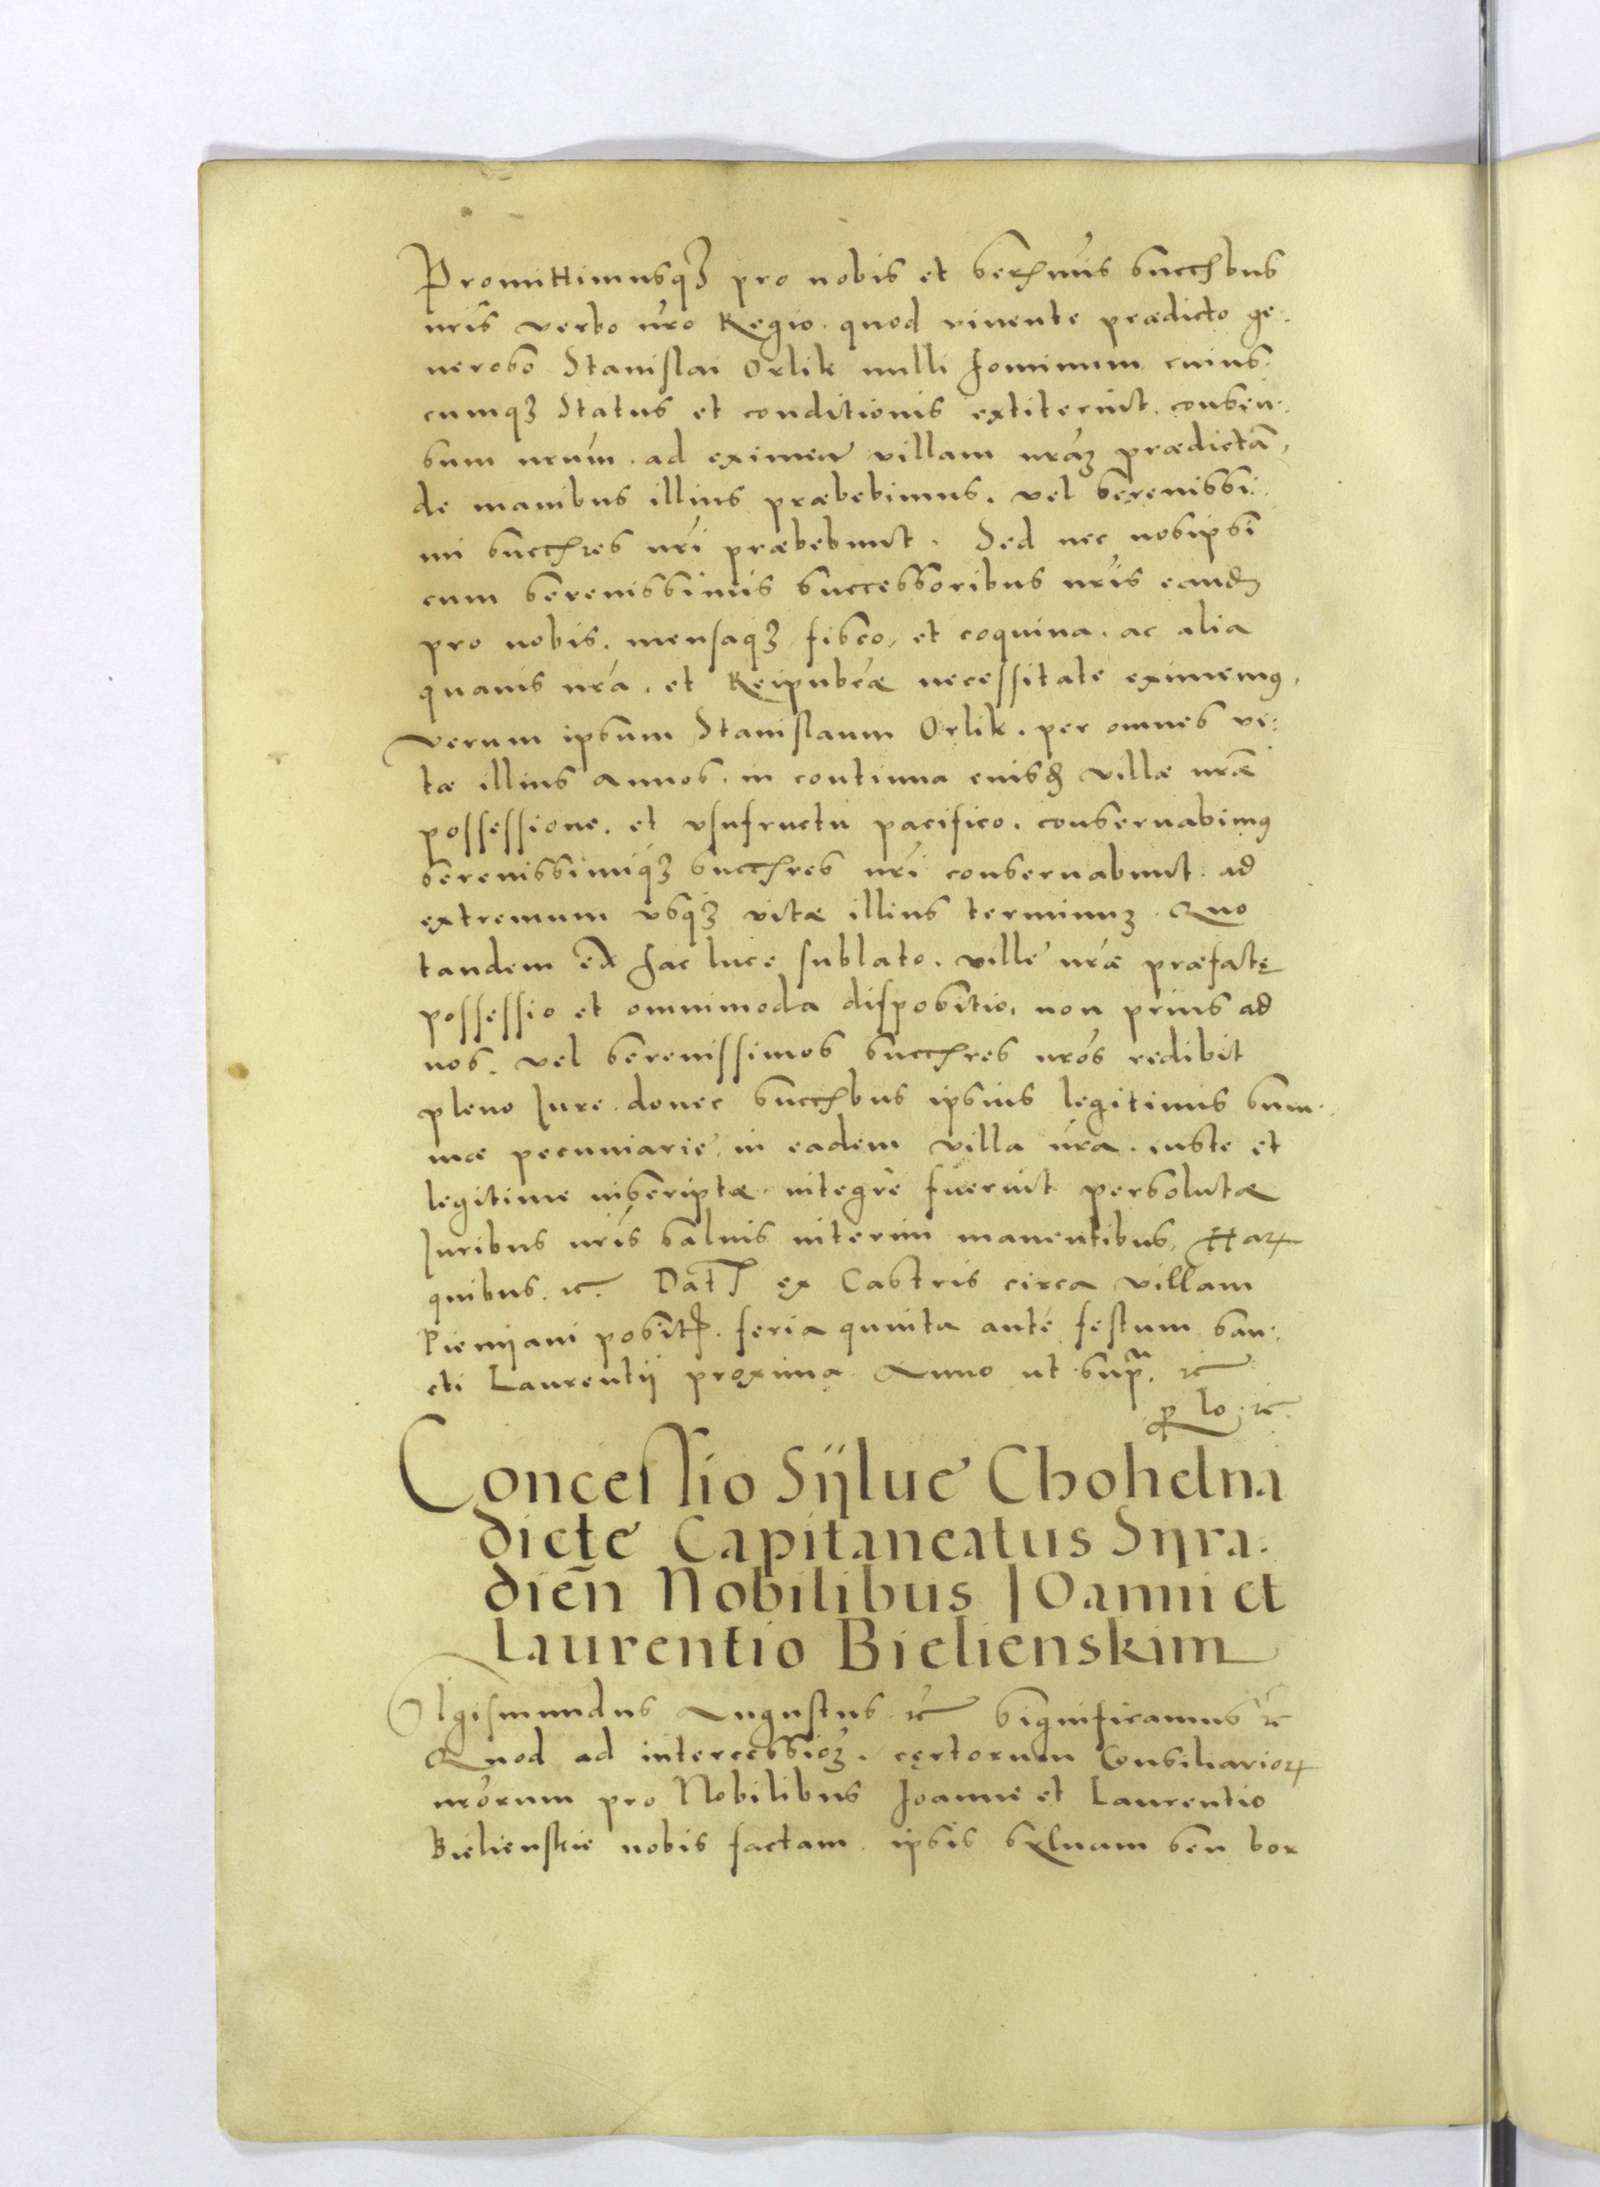 Promittimusqȝ pro nobis et serᵐis succᵇus
nr̃is verbo nr̃o Regio. quod vivente prædicto ge:
neroso Stanislai Orlik nulli hominum cuius:
cumqȝ status et conditionis extiterint. consen:
sum nr̃um. ad eximen̄ villam nr̃aȝ prædictã.
de manibus illius præbebimus. vel serenissi:
mi succr̃es nr̃i præbebunt. Sed nec nosipsi
cum serenissimis successoribus nr̃is eand̃
pro nobis. mensaqȝ fisco, et coquina. ac alia
quavis nr̃a. et Reipubcæ necessitate eximemꝰ.
verum ipsum Stanislaum Orlik. per omnes vi:
tæ illius annos. in continua euisd̃ villæ nr̃æ
possessione. et vsufructu pacifico. conseruabimꝰ
serenissimiqȝ succr̃es nr̃i conseruabunt. ad
extremum vsqȝ vitæ illius terminuȝ. Quo
tandem ex hac luce sublato. villę nr̃æ præfatę
possessio et omnimoda dispositio, non prius ad
nos. vel serenissimos succr̃es nr̃os redibit
pleno Jure. donec succᵇus ipsius legitimis sum:
mæ pecuniarie in eadem villa nr̃a. iuste et
legitime inscriptæ integrè fuerint persolutæ
Juribus nr̃is salvis interim manentibus, Haꝝ
quibus. ꝛc. Dat̃ ex Castris circa villam
Piemijani posit̃. feria quinta ante festum san:
cti Laurentij proxima Anno ut supᵃ. ꝛc
ꝑ lo. ꝛc.
Concessio Sijlue Chohelna
dicte Capitaneatus Sijra:
dieñ Nobilibus JOanni et
Laurentio Bielienskim
SIgismundus Augustus ꝛc Significamus ꝛc
Quod ad intercessioȝ. cęrtorum Consiliarioꝝ
nr̃orum pro Nobilibus Joanne et Laurentio
Bielienskie nobis factam ipsis syluam seu bor